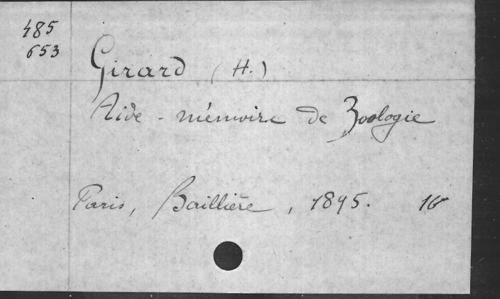 485
653
Girard (H.)
Aide-mémoire de Zoologie
Paris, Baillière, 1895.